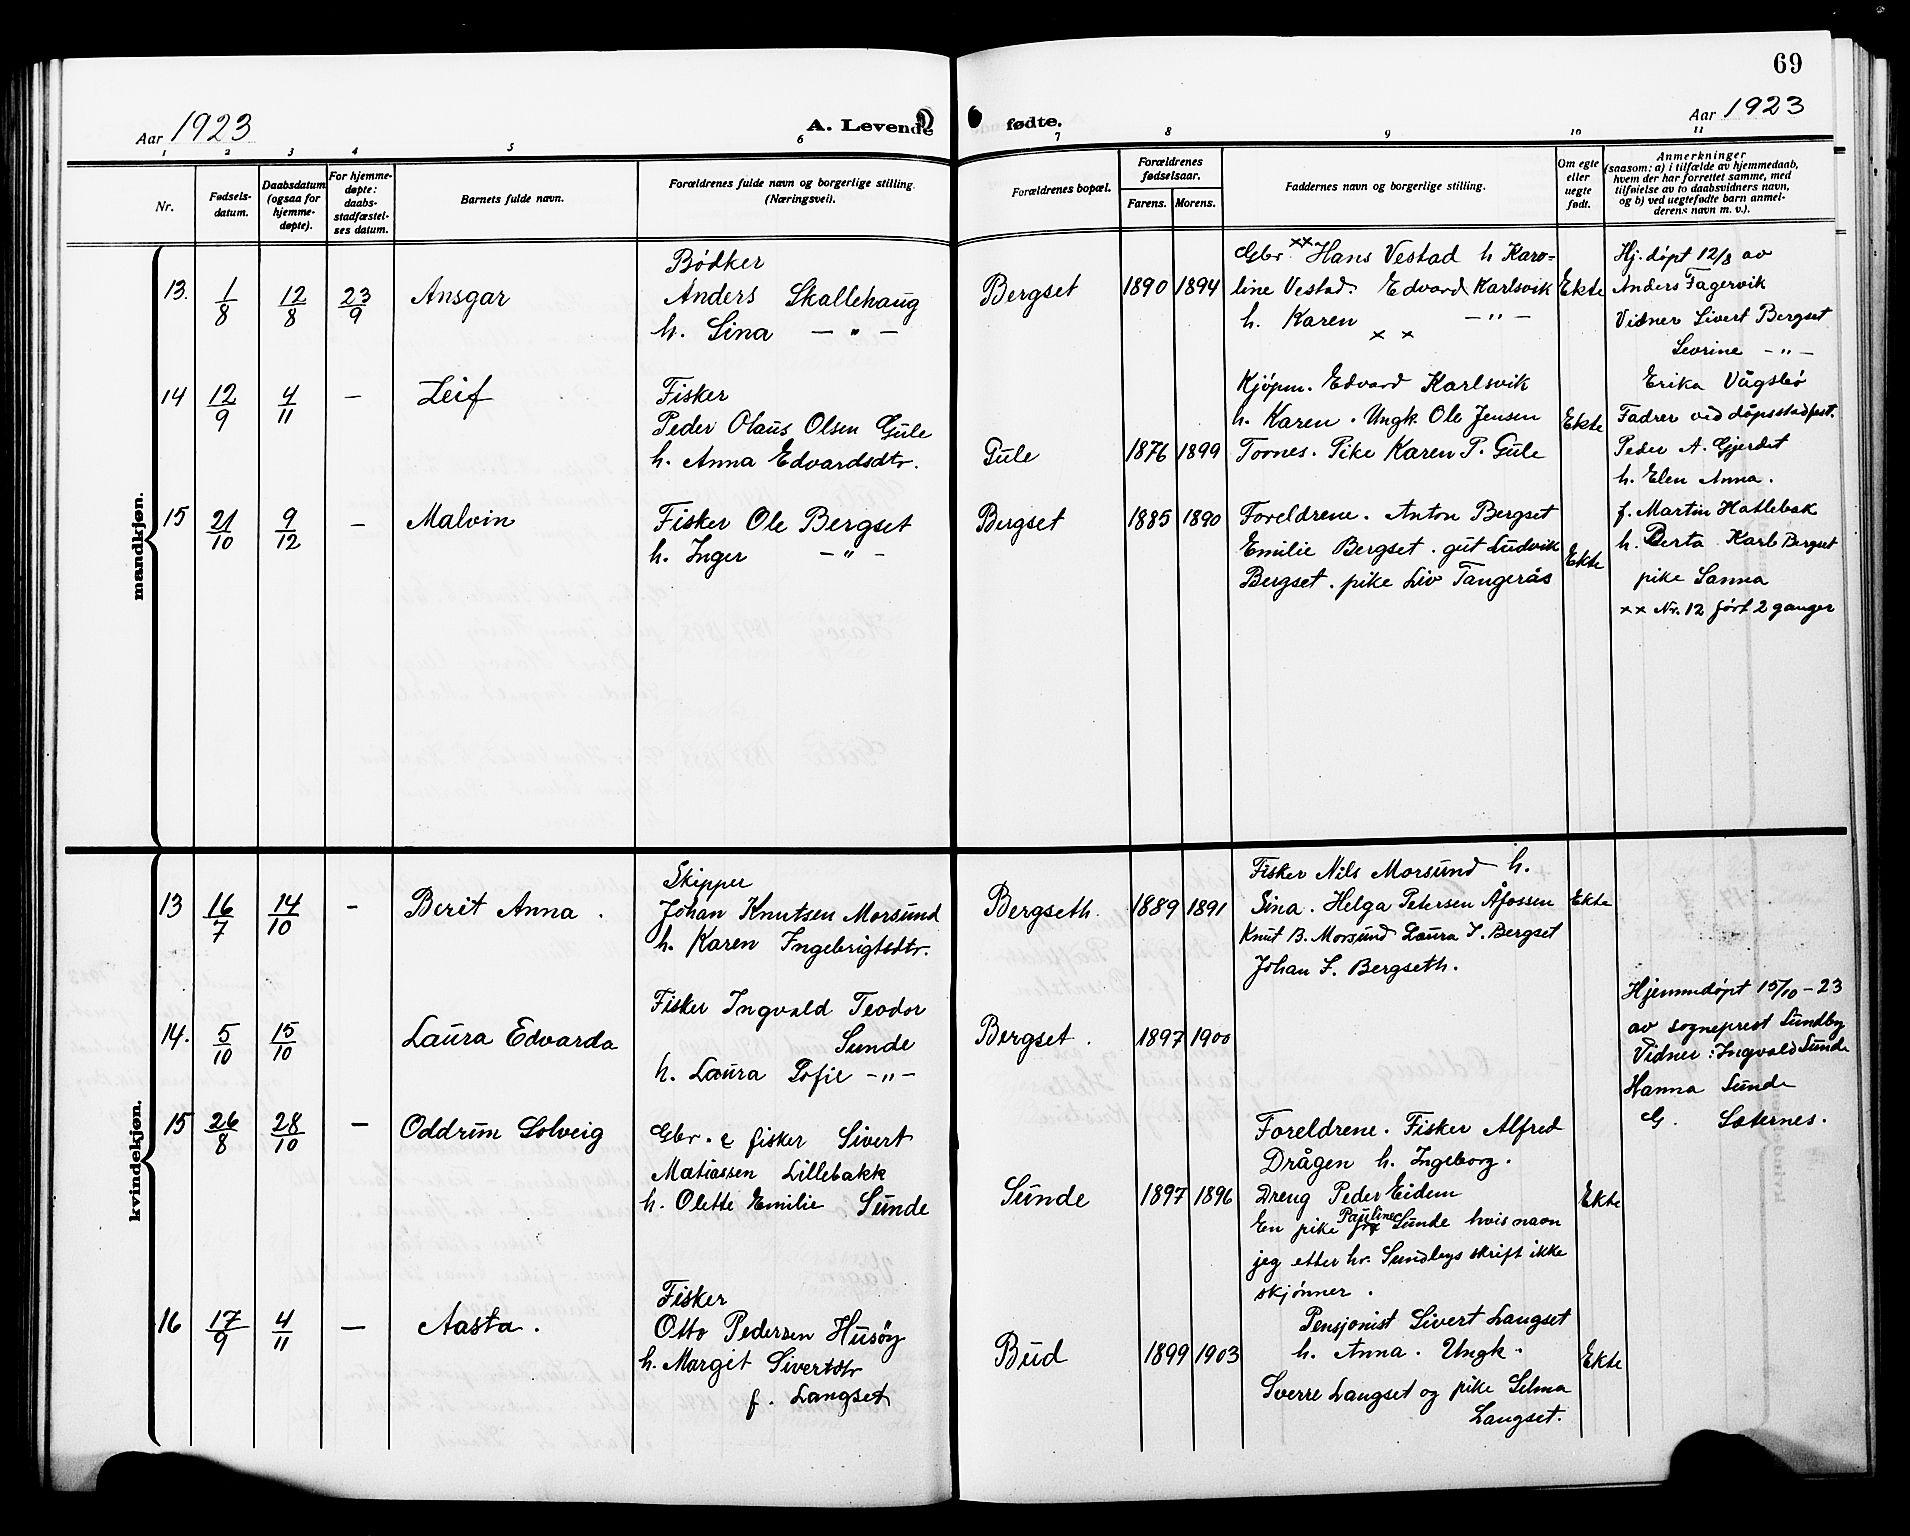 69
Aar 1923
A. Levende
fødte.
Aar 1923
1 2 3 4 5 6 7 8 9 10 11
Nr.
Fødsels-
datum.
Daabsdatum
(ogsaa for
hjemme-
døpte).
For hjemme-
døpte:
daabs-
stadfæstel-
ses datum.
Barnets fulde navn.
Forældrenes fulde navn og borgerlige stilling.
(Næringsvei).
Forældrenes bopæl.
Forældrenes
fødselsaar.
Farens. Morens.
Faddernes navn og borgerlige stilling.
Om egte
eller
uegte
født.
Anmerkninger
(saasom: a) i tilfælde av hjemmedaab,
hvem der har forrettet samme, med
tilføielse av to daabsvidners navn,
og b) ved uegtefødte barn anmel-
derens navn m. v.).
mandkjøn.
13. 1/8 12/8 23/9 Ansgar
Bödker
Anders Skallehaug
h. Sina — " —
Bergset 1890 1894
Gbr. ×× Hans Vestad h Karo-
line Vestad. Edvard Karlsvik
h. Karen — " —
× ×
Ekte
Hj. döpt 12/8 av
Anders Fagervik
Vidner Sivert Bergset
Sevrine — " —
Erika Vågsbö
Fadrer ved döpsstadfest.
Peder A. Gjerdet
h. Elen Anna.
f. Martin Hatlebak
h. Berta Karl Bergset
pike Sanna
×× Nr. 12 fört 2 ganger
14 12/9 4/11 — Leif
Fisker
Peder Olaus Olsen Gule
h. Anna Edvardsdtr.
Gule 1876 1899
Kjöpm. Edvard Karlsvik
h. Karen. Ungk. Ole Jensen
Tornes. Pike Karen P. Gule
Ekte
15 21/10 9/12 — Malvin
Fisker Ole Bergset
h. Inger — " —
Bergset 1885 1890
Foreldrene. Anton Bergset
Emilie Bergset. gut Ludvik
Bergset. pike Liv Tangerås
Ekte
kvindekjøn.
13 16/7 14/10 — Berit Anna.
Skipper
Johan Knutsen Morsund
h. Karen Ingebrigtsdtr.
Bergseth. 1889 1891
Fisker Nils Morsund h.
Sina. Helga Petersen Åfossen
Knut B. Morsund Laura J. Bergset
Johan S. Bergseth.
Ekte
14. 5/10 15/10 Laura Edvarda
Fisker Ingvald Teodor
Sunde
h. Laura Sofie — " —
Bergset. 1897 1900
Hjemmedöpt 15/10 – 23
av sogneprest Sundby
Vidner: Ingvald Sunde
Hanna Sunde
G. Sæternes.
15 26/8 28/10 — Oddrun Solveig
Gbr. & fisker Sivert
Matiassen Lillebakk
h. Olette Emilie Sunde
Sunde 1897 1896
Foreldrene. Fisker Alfred
Drågen h. Ingeborg.
Dreng Peder Eidem
Pauline
En pike Sunde hvis navn
jeg etter hr. Sundbys skrift ikke
skjönner.
Ekte
16 17/9 4/11 — Aasta.
Fisker
Otto Pedersen Husöy
h. Margit Sivertdtr
f. Langset
Bud 1899 1903
Pensjonist Sivert Langset
h. Anna. Ungk.
Sverre Langset og pike Selma
Langset.
Ekte